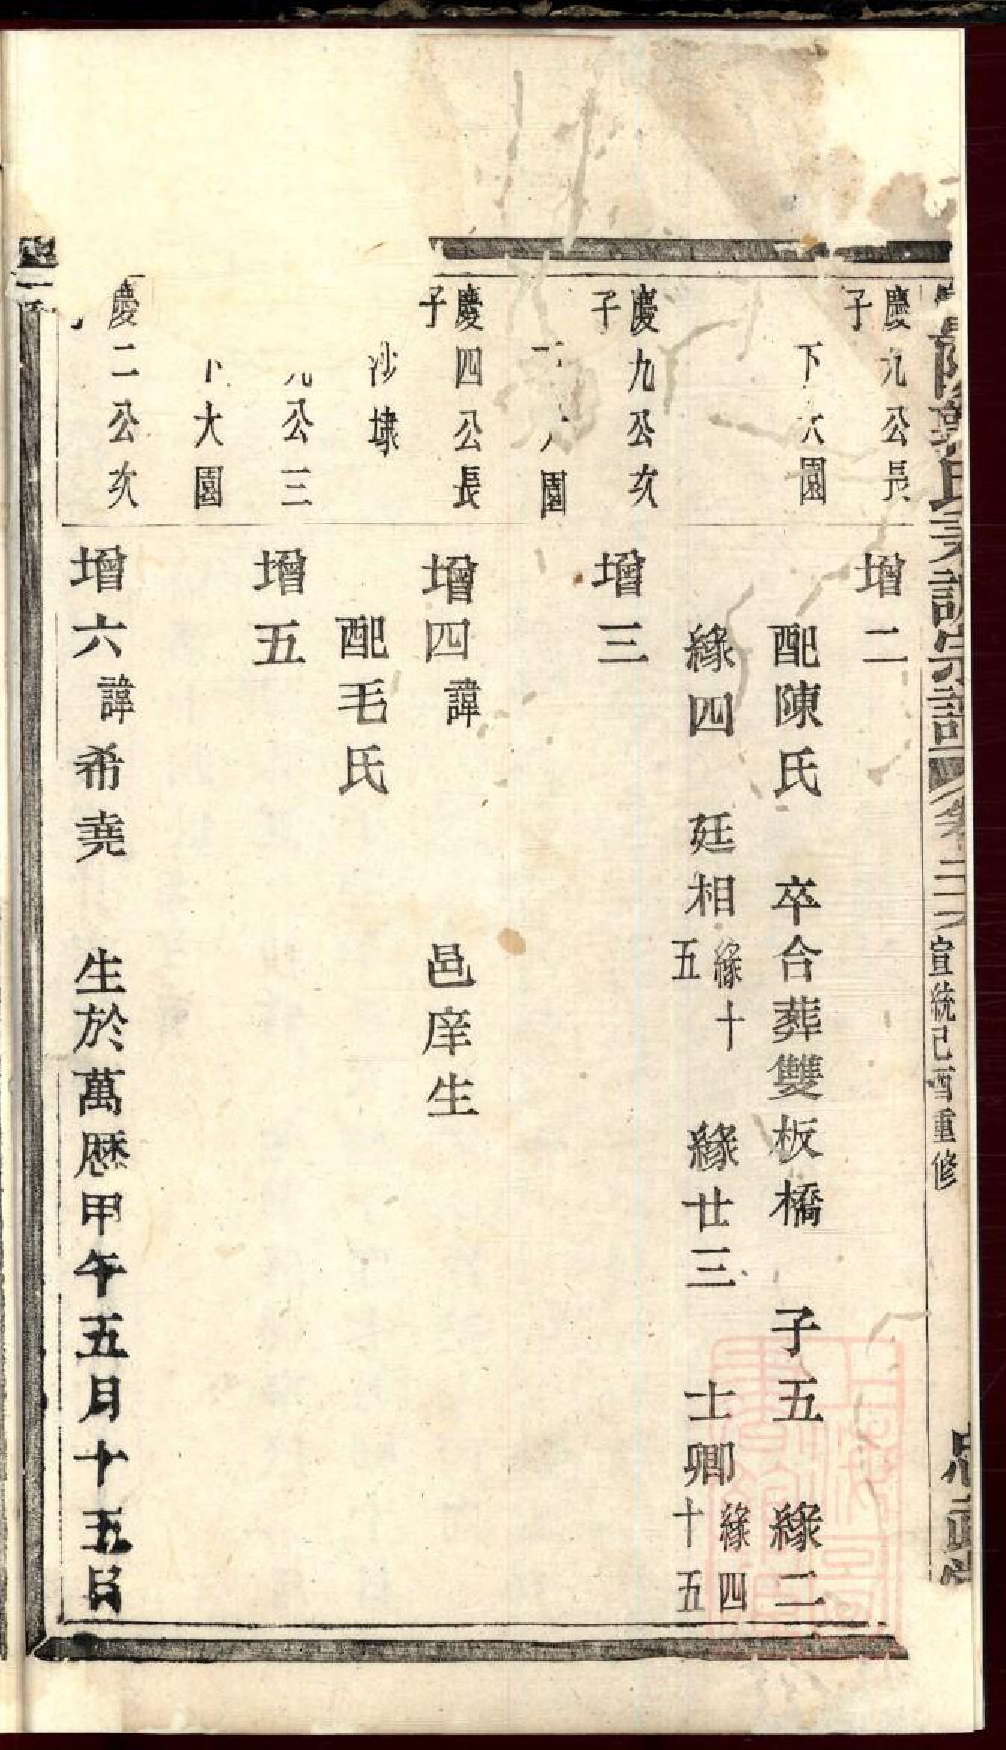 氏
宗譜
宣統己酉重修
慶九公長
子
增二
下大園
配陳氏 卒合葬雙板橋 子五 緣二
緣四 廷相 緣十五 緣廿三 士卿 緣四十五
慶九公次
子
增三
園
慶四公長
子
增四 諱 邑庠生
沙埭
配毛氏
九公三
增五
大園
慶二公次
增六 諱希堯 生於萬歷甲午五月十五日